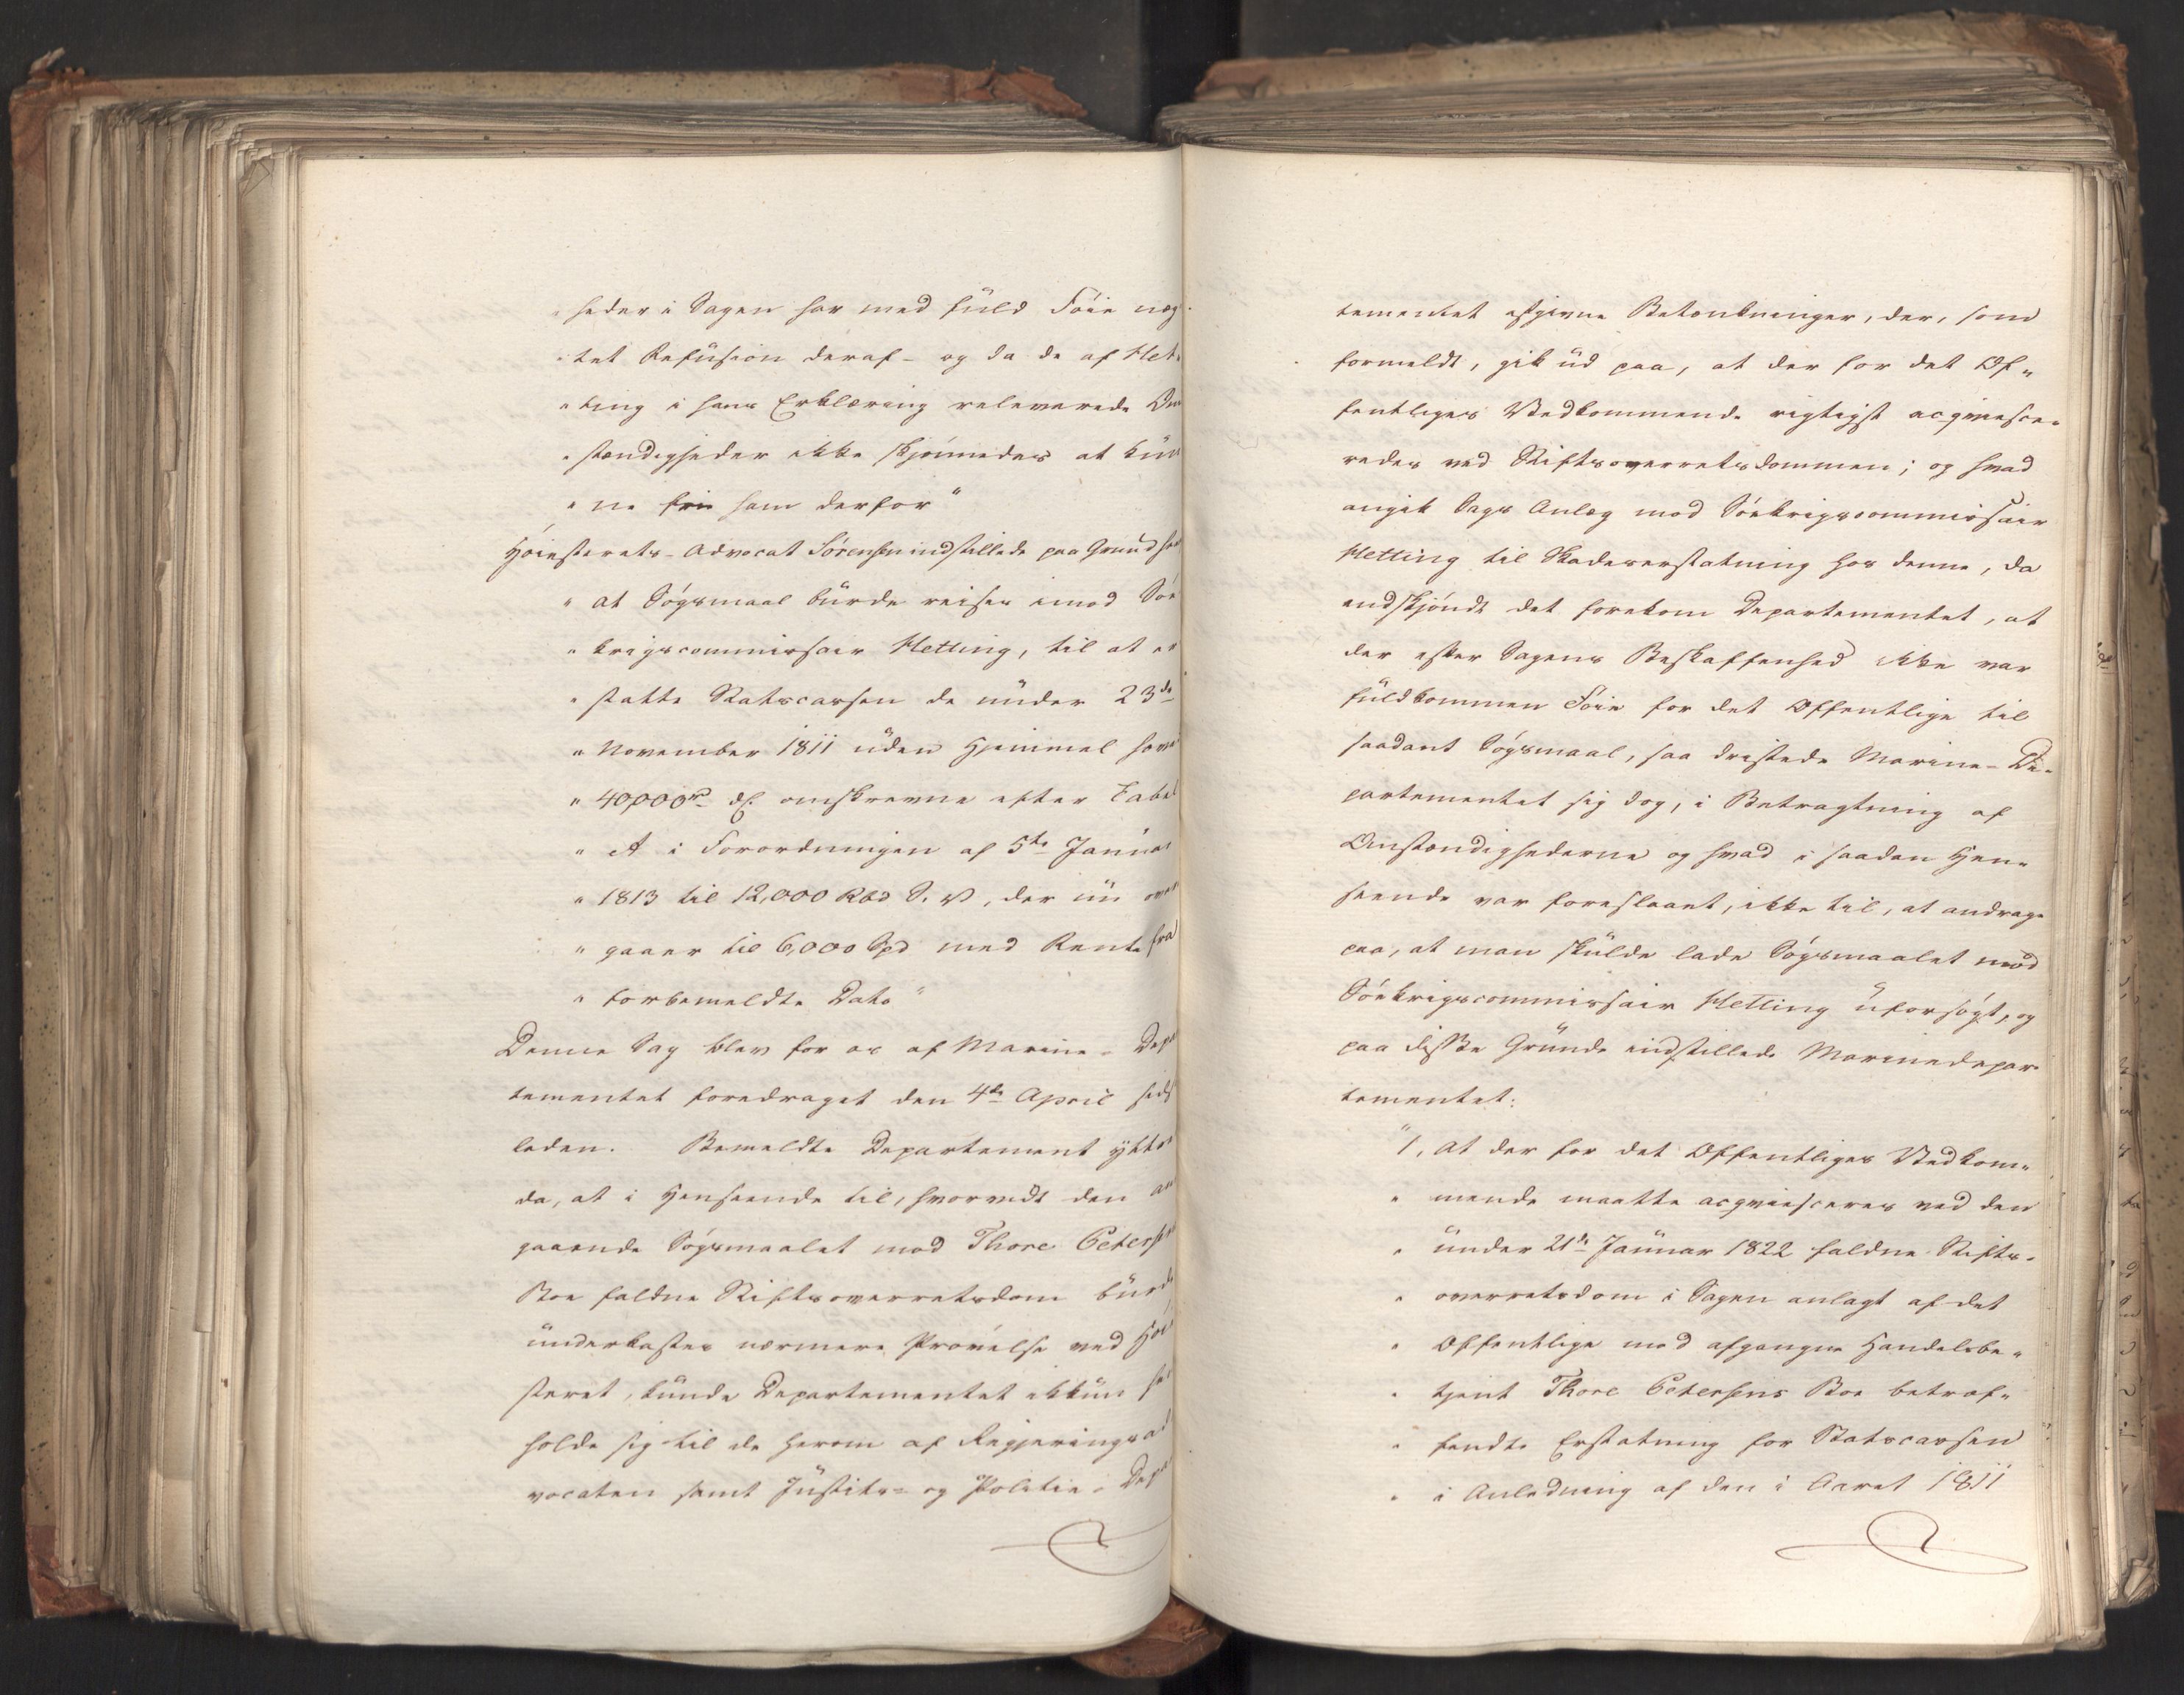 "heder i Sagen har med fuld Føie næg
"tet Refusion deraf - og da de af Het-
"ting i hans Erklæring releverede Om
"stændigheder ikke skjønnedes at kun
"ne frie ham derfor"
Høiesterets-Advocat Sørensen indstillede paa Grund her
" at Søgsmaal burde reises imod Søe
" krigscommissair Hetting, til at er
" statte Statscassen de under 23de
" November 1811 uden Hjemmel hæve
" 40,000rd d.C. omskrevne efter Tabel
" A i Forordningen af 5te Januar
" 1813 til 12,000 Rbd S. V, der nu over
" gaaer til 6,000 Spd med Rente fra
" forbemeldte Dato"
Denne Sag blev for os af Marine-Depar
tementet foredraget den 4de April sidst
leden. Bemeldte Departement yttre
da, at i Henseende til, hvorvidt den an
gaaende Søgsmaalet mod Thore Petersens
Boe faldne Stiftsoverretsdom burde
underkastes nærmere Prøvelse ved Høie
steret, kunde Departementet ikkun hen
holde sig til de herom af Regjeringsad
vocaten samt Justits- og Politie-Depar
tementet afgivne Betænkninger, der, som
formeldt, gik ud paa, at der for det Of-
fentliges Vedkommende rigtigst acqviesce-
redes ved Stiftsoverretsdommen; og hvad
angik Sags Anlæg mod Søekrigscommissair
Hetting til Skadeserstatning hos denne, da
endskjøndt det forekom Departementet, at
der efter Sagens Beskaffenhed ikke var
fuldkommen Føie for det Offentlige til
saadant Søgsmaal, saa dristede Marine-De-
partementet sig dog, i Betragtning af
Omstændighederne og hvad i saadan Hen-
seende var foreslaaet, ikke til, at andrage
paa, at man skulde lade Søgsmaalet mod
Søekrigscommissair Hetting uforsøgt, og
paa disse Grunde indstillede Marinedepar
tementet:
"1, At der for det Offentliges Vedkom-
" mende maatte acqviesceres ved den
" under 21de Januar 1822 faldne Stifts-
" overretsdom i Sagen anlagt af det
" Offentlige mod afgangne Handelsbe-
" tjent Thore Petersens Boe betref-
" fende Erstatning for Statscassen
" i Anledning af den i Aaret 1811